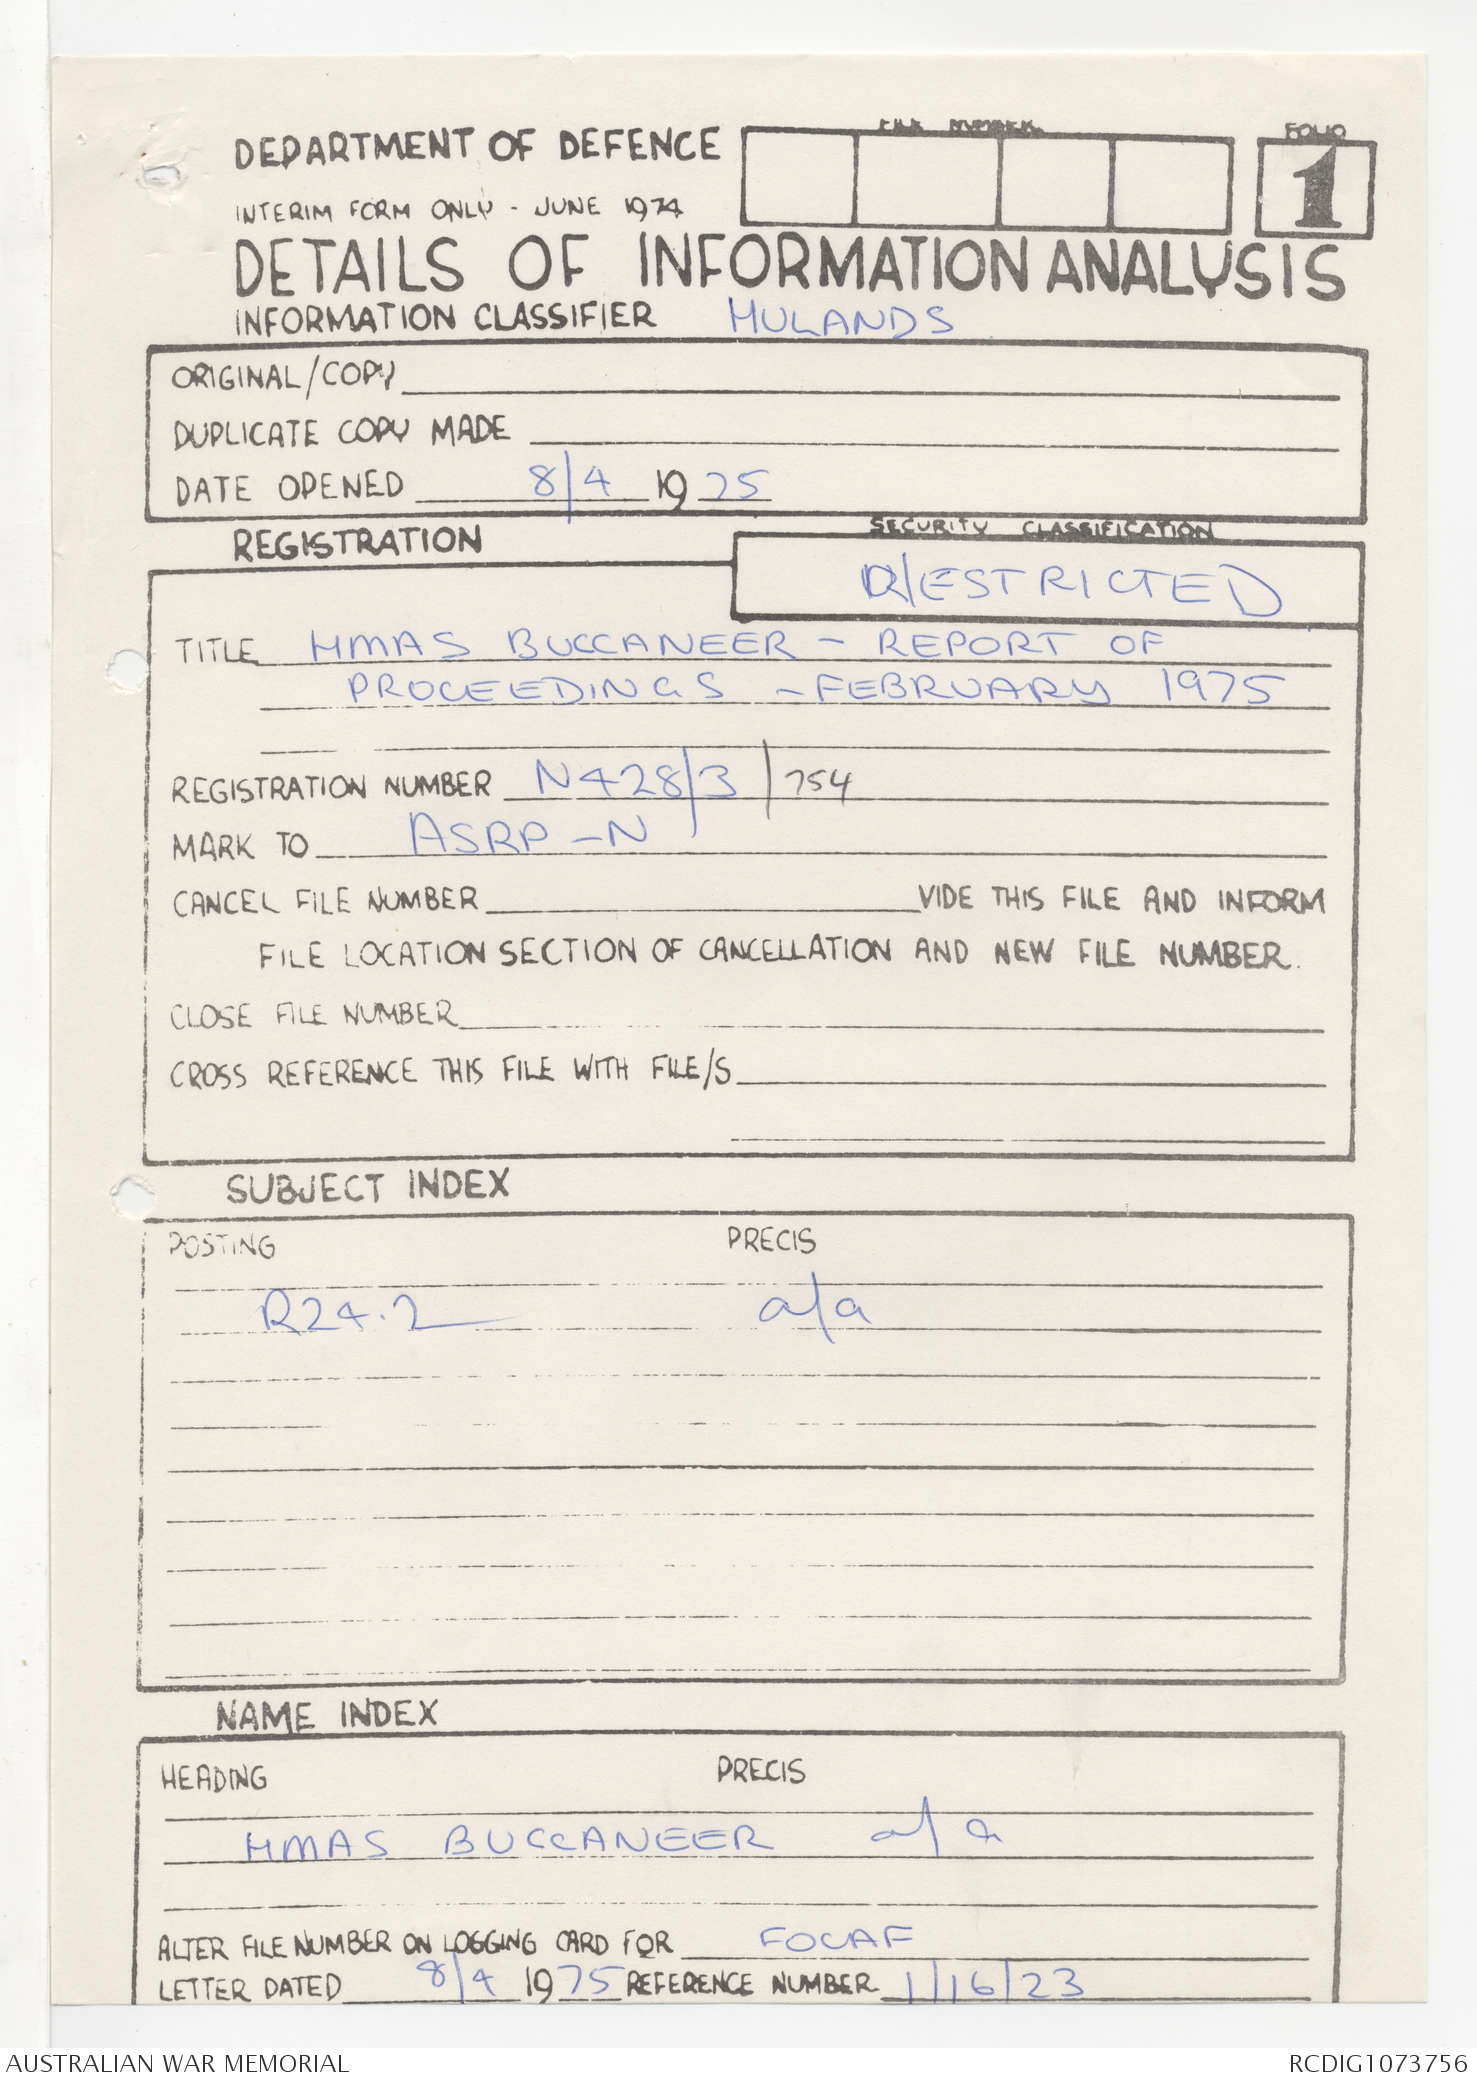 DEPARTMENT OF DEFENCE
FILE NUMBER.
FOLIO
1
INTERIM FORM ONLY - JUNE 1974
DETAILS OF INFORMATION ANALYSIS
INFORMATION CLASSIFIER HULANDS
ORIGINAL/COPY
DUPLICATE COPY MADE
DATE OPENED 8/4 1975
REGISTRATION
SECURITY CLASSIFICATION
RESTRICTED
TITLE HMAS BUCCANEER - REPORT OF
PROCEEDINGS - FEBRUARY 1975
REGISTRATION NUMBER N428/3/754
MARK TO ASRP-N
CANCEL FILE NUMBER VIDE THIS FILE AND INFORM
FILE LOCATION SECTION OF CANCELLATION AND NEW FILE NUMBER.
CLOSE FILE NUMBER
CROSS REFERENCE THIS FILE WITH FILE/S
SUBJECT INDEX
POSTING PRECIS
R24.2 a/a
NAME INDEX
HEADING PRECIS
HMAS BUCCANEER a/a
ALTER FILE NUMBER ON LOGGING CARD FOR FOCAF
LETTER DATED 8/4 1975 REFERENCE NUMBER 1/16/23
AUSTRALIAN WAR MEMORIAL
RCDIG1073756